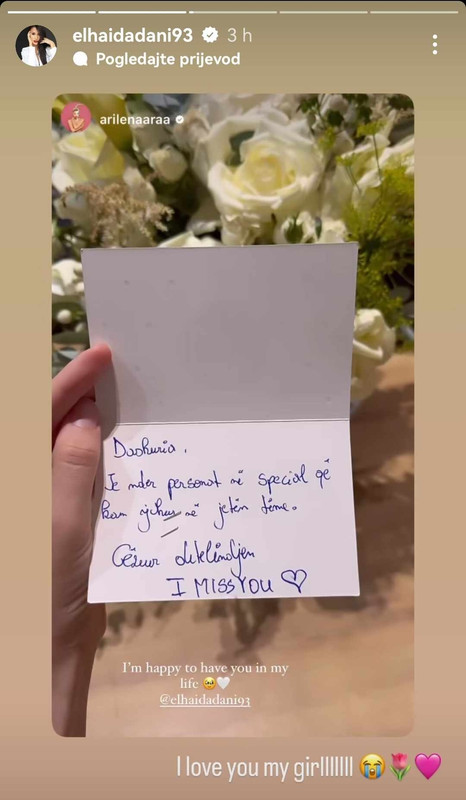 elhaidadani93 3 h
Pogledajte prijevod
arilenaaraa
Dashuria,
Je nder personat më special që
kam njohur në jetën time.
Gëzuar ditelindjen
I MISS YOU ♡
I'm happy to have you in my
life 🥹🤍
@elhaidadani93
I love you my girlllllll 😭🌷💗